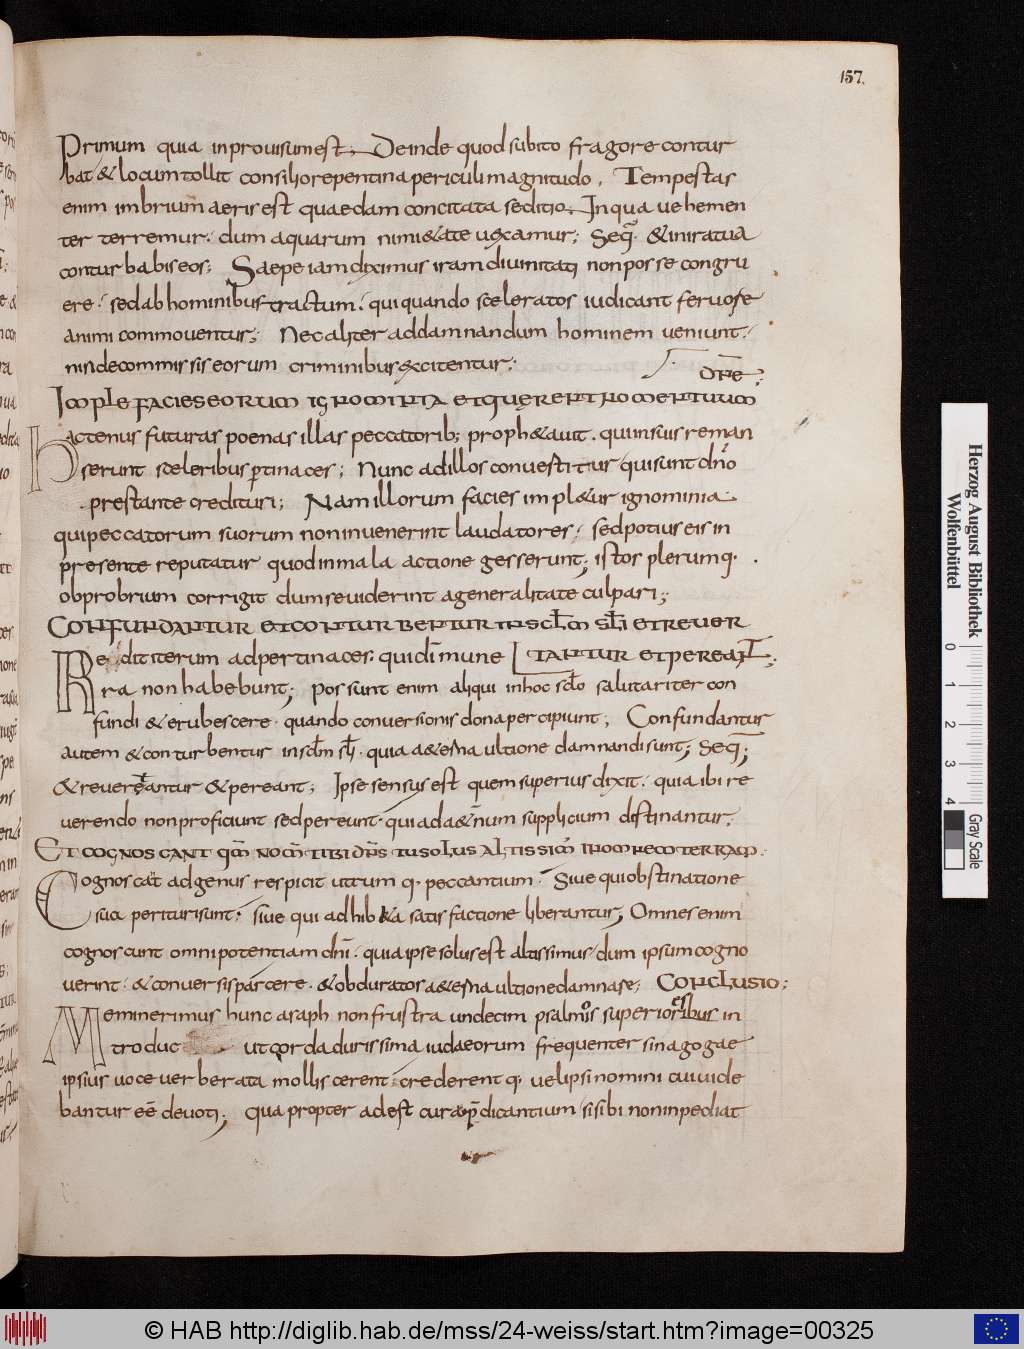 157.
Primum quia inprouisum est. Deinde quod subito fragore contur
bat & locum tollit consilio repentina periculi magnitudo. Tempestas
enim imbrium aeris est quaedam concitata seditio. In qua uehemen
ter terremur. dum aquarum nimi&ate uexamur; Seq̄. & in ira tua
conturbabis eos; Saepe iam diximus iram diuinitati non posse congru
ere. sed ab hominibus tractum. qui quando sceleratos iudicant feruore
animi commouentur; Nec aliter ad damnandum hominem ueniunt.
nisi de commissis eorum criminibus excitentur;
dn̄e;
Imple facies eorum ignominia et querent nomen tuum
Hactenus futuras poenas illas peccatorib; proph&auit. qui in suis reman
serunt sceleribus p̱tinaces; Nunc ad illos conuertitur qui sunt dn̄o
prestante credituri; Nam illorum facies impl&ur ignominia
qui peccatorum suorum non inuenerint laudatores. sed potius eis in
presente reputatur quod in mala actione gesserunt; istos plerumq.
obprobrium corrigit dum se uiderint a generalitate culpari;
Confundantur et conturbentur in sclm̄ sl̄i et reuer
Redit iterum ad pertinaces. qui dn̄i mune [tantur et pereant;
ra non habebunt; possunt enim aliqui in hoc sclo salutariter con
fundi & erubescere. quando conuersionis dona percipiunt; Confundantur
autem & conturbentur in sclm̄ sl̄i. quia a&erna ultione damnandi sunt; Seq̄;
& reuereantur & pereant; Ipse sensus est quem superius dixit. quia ibi re
uerendo non proficiunt sed pereunt. qui ad a&ernum supplicium destinantur.
Et cognoscant qm̄ nom̄ tibi dn̄s tu solus altissim̄ in omne co terram.
Cognoscat ad genus respicit utrumq. peccantium. Siue qui obstinatione
sua perituri sunt. siue qui adhibita satisfactione liberantur; Omnes enim
cognoscunt omnipotentiam dn̄i. quia ipse solus est altissimus. dum ipsum cogno
uerint. & conuersis parcere. & obduratos a&erna ultione damnase; Conclusio;
Meminerimus hunc asaph non frustra undecim psalmos superioribus in
troduc ut corda durissima iudaeorum frequenter sinagogae
ipsius uoce uerberata mollescerent. crederentq. uel ipsi nomini cui uide
bantur eē deuoti; Qua propter adest cura p̄dicantium si sibi non inpediat
Herzog August Bibliothek
Wolfenbüttel
0 1 2 3 4
Gray Scale
© HAB http://diglib.hab.de/mss/24-weiss/start.htm?image=00325